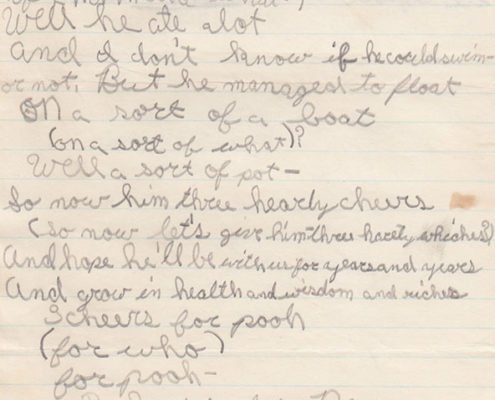 Well he ate alot
And I don't know if he could swim-
or not, But he managed to float
On a sort of a boat
(on a sort of what)?
Well a sort of pot-
So now him three hearly cheers
(so now let's give him three harety whiches?)
And hope he'll be with us for years and years
And grow in health and wisdom and riches
3 cheers for pooh
(for who)
for pooh-